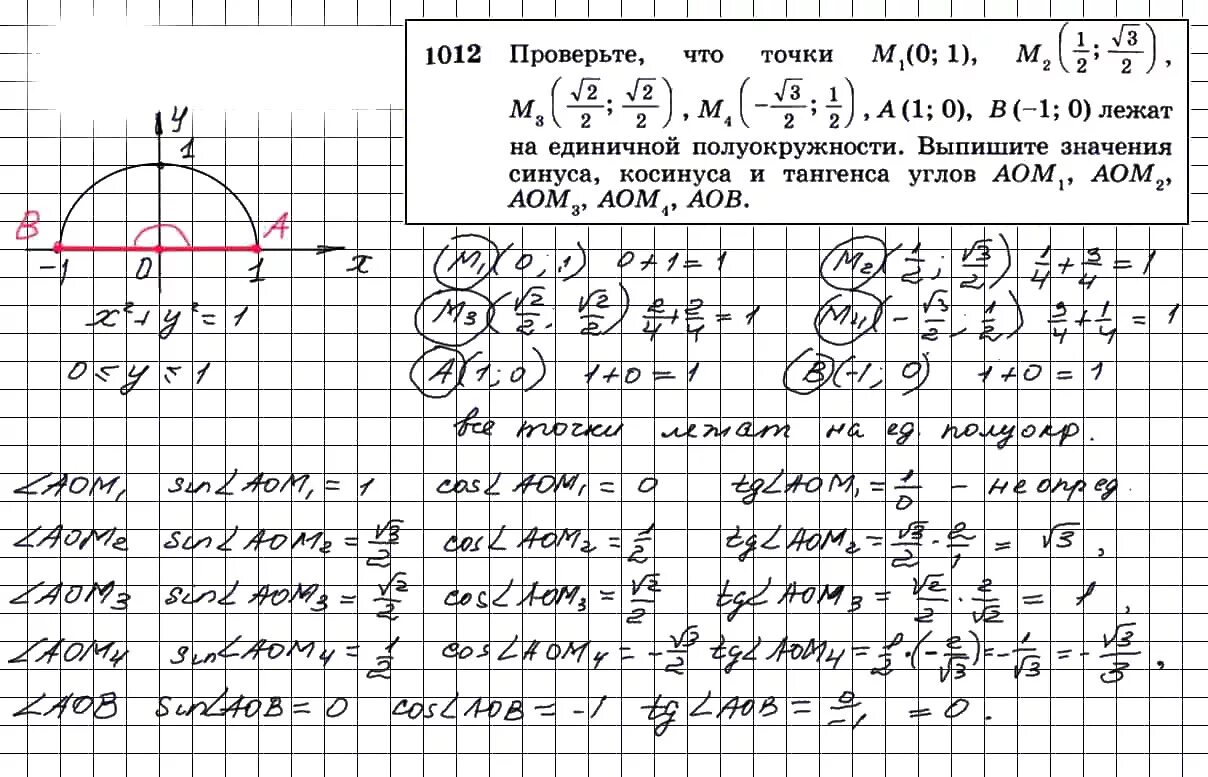 1012 Проверьте, что точки M₁(0; 1), M₂(1/2; √3/2),
M₃(√2/2; √2/2), M₄(−√3/2; 1/2), A (1; 0), B (−1; 0) лежат
на единичной полуокружности. Выпишите значения
синуса, косинуса и тангенса углов AOM₁, AOM₂,
AOM₃, AOM₄, AOB.
y
1
B A
-1 0 1 x
x² + y² = 1
0 ≤ y ≤ 1
M₁(0; 1) 0+1=1 M₂(1/2; √3/2) 1/4 + 3/4 = 1
M₃(√2/2; √2/2) 2/4 + 2/4 = 1 M₄(-√3/2; 1/2) 3/4 + 1/4 = 1
A(1; 0) 1+0=1 B(-1; 0) 1+0=1
все точки лежат на ед. полуокр.
∠AOM₁ sin∠AOM₁ = 1 cos∠AOM₁ = 0 tg∠AOM₁ = 1/0 - не опред.
∠AOM₂ sin∠AOM₂ = √3/2 cos∠AOM₂ = 1/2 tg∠AOM₂ = √3/2 · 2/1 = √3,
∠AOM₃ sin∠AOM₃ = √2/2 cos∠AOM₃ = √2/2 tg∠AOM₃ = √2/2 · 2/√2 = 1,
∠AOM₄ sin∠AOM₄ = 1/2 cos∠AOM₄ = -√3/2 tg∠AOM₄ = 1/2·(-2/√3) = -1/√3 = -√3/3,
∠AOB sin∠AOB = 0 cos∠AOB = -1 tg∠AOB = 0/-1 = 0.